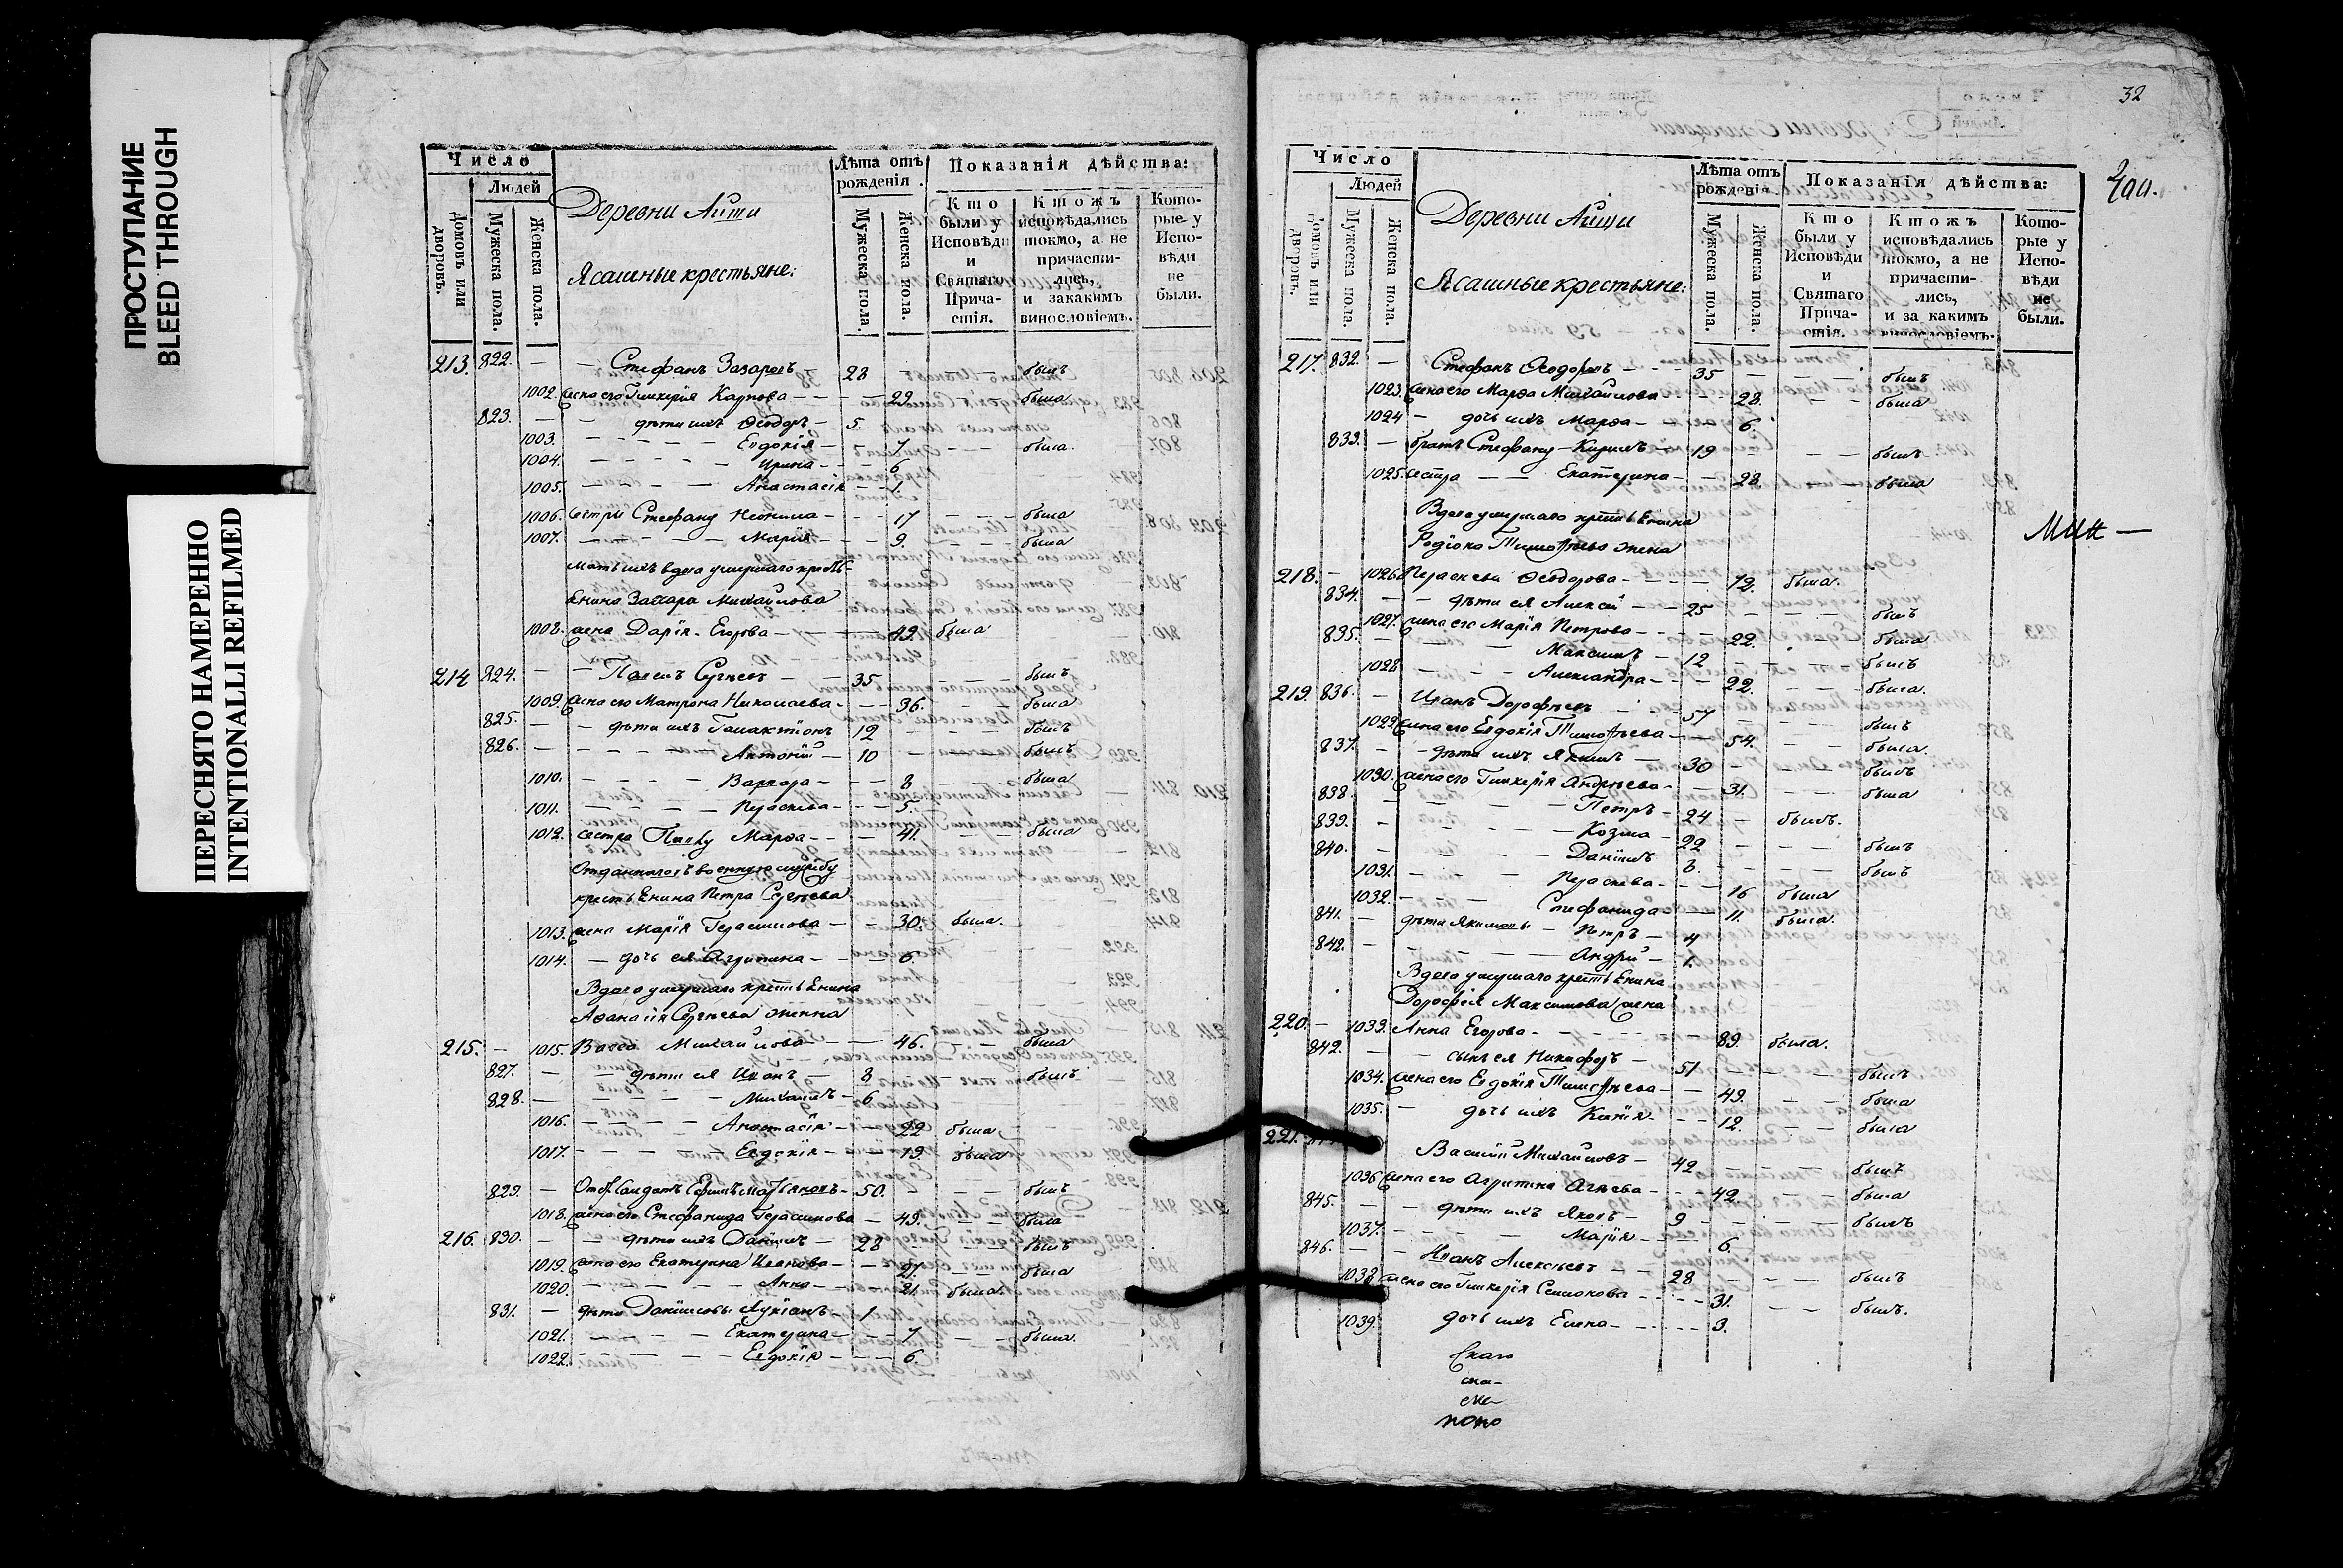 ПРОСТУПАНИЕ
BLEED THROUGH
ПЕРЕСНЯТО НАМЕРЕННО
INTENTIONALLI REFILMED
Число
Людей
Домовъ или дворовъ.
Мужеска пола.
Женска пола.
Деревни Айши
Ясашные крестьяне:
Лѣта отъ рожденія.
Мужеска пола.
Женска пола.
Показанія дѣйства:
Кто были у Исповѣди и Святаго Прича-стія.
Ктожъ исповѣдались токмо, а не причасти-лись, и закакимъ винословіемъ.
Кото-рые у Испо-вѣди не были.
213. 822. — — Стефанъ Захаровъ — 28 — — былъ
1002. жена его Гликерія Карпова — — — 29. — — была
823. — — дѣти ихъ Ѳеодоръ — 5.
1003. — — — — Евдокія — — 7 — — была.
1004. — — — — Ирина — — — 6
1005. — — — — Анастасія — — 1.
1006. сестры Стефану Неонила — — — 17 — — — была
1007. — — — — Марія — — — 9. — — — была
мать ихъ вдова умершаго кресть-
янина Захара Михайлова
1008. жена Дарія Егорова — — — 49. была
214 824. — — Павелъ Сергѣевъ — — 35 — — — былъ
1009. жена его Матрона Николаева — — — 36. — — была
825. — — дѣти ихъ Галактіонъ 12 — — — былъ
826. — — — — Антоній — 10 — — — былъ
1010. — — — — Варвара — — — 8 — — — была
1011. — — — — Параскева — — — 5.
1012. сестра Павлу Марѳа — — — 41. — — — была
Отданнаго въ военную службу
крестьянина Петра Сергѣева
1013. жена Марія Герасимова — — — 30. была.
1014. — дочь ея Агрипина — — — 6.
Вдова умершаго крестьянина
Аѳанасія Сергѣева женна
215. — 1015. Васса Михайлова — — — 46. — — была
827. — — дѣти ея Иванъ — 8 — — былъ
828. — — — — Михаилъ — 6
1016. — — — — Анастасія — — 22 была
1017. — — — — Евдокія — — 19. была
829. — Отст. Солдатъ Ефимъ Мартьяновъ — 50. — — — былъ
1018. жена его Стефанида Герасимова — 49. — — была
216. 830. — — дѣти ихъ Даніилъ — 28 — — — былъ
1019. жена его Екатерина Иванова — — 27. — — была
1020. — — — — Анна — — 21 была.
831. — дѣти Даніиловы Лукіанъ — 1
1021. — — — — Екатерина — — — 7 — — была.
1022. — — — — Евдокія — — — 6.
32
Число
Людей
Домовъ или дворовъ.
Мужеска пола.
Женска пола.
Деревни Айши
Ясашные крестьяне:
Лѣта отъ рожденія.
Мужеска пола.
Женска пола.
Показанія дѣйства:
Кто были у Исповѣди и Святаго Прича-стія.
Ктожъ исповѣдались токмо, а не причасти-лись, и за какимъ винословіемъ.
Кото-рые у Испо-вѣди не были.
217. 832. — Стефанъ Ѳеодоровъ — — — 35 — — — былъ
1023. жена его Марѳа Михайлова — — 28. — — была
1024 — дочь ихъ Марѳа — — — 6.
833. — братъ Стефану — Кирилъ — 19 — — былъ
1025. сестра — — Екатерина — — 28 — — была
Вдова умершаго крестьянина
Родіона Тимоѳѣева жена
218. — 1026. Параскева Ѳеодорова — — — 72. была.
834. — — дѣти ея Алексѣй — — 25 — — — былъ
1027. жена его Марія Петрова — — — 22. — — была
835. — — — Максимъ — 12 — — — былъ
1028. — — — Александра — — — 22. — — была.
219. 836. — Иванъ Дорофѣевъ — — — 57 — — — былъ
1029. жена его Евдокія Тимоѳѣева — — 54. — — была.
837. — — дѣти ихъ Якимъ — 30 — — — былъ
1030. жена его Гликерія Андрѣева — — 31. — — была
838. — — — — Петръ — 24 — былъ.
839. — — — — Козма — 22 — — — былъ
840. — — — — Даніилъ 8. — — — былъ
1031. — — — Параскева — — — 16 была
1032. — — — Стефанида — — — 11. была.
841. — дѣти Якимовы — Петръ — 4
842. — — — — Андрей — 1.
Вдова умершаго крестьянина
Дорофѣя Максимова жена
220. — 1033. Анна Егорова — — — 89. была.
842. — — сынъ ея Никифоръ — 51 — — — былъ
1034. жена его Евдокія Тимоѳѣева — — 49. — — была
1035. — дочь ихъ Ксенія — — — 12. — — была
221. Василій Михайловъ — 42 — — — былъ
1036 жена его Агрипина Агѣева — — — 42. — — была
845. — — дѣти ихъ Яковъ — 9 — — — былъ
1037. — — — Марія — — — 6.
846. — — Иванъ Алексѣевъ — — 28 — — — былъ
1038 жена его Гликерія Семионова — — — 31. — — былъ.
1039. дочь ихъ Елена — — — 3.